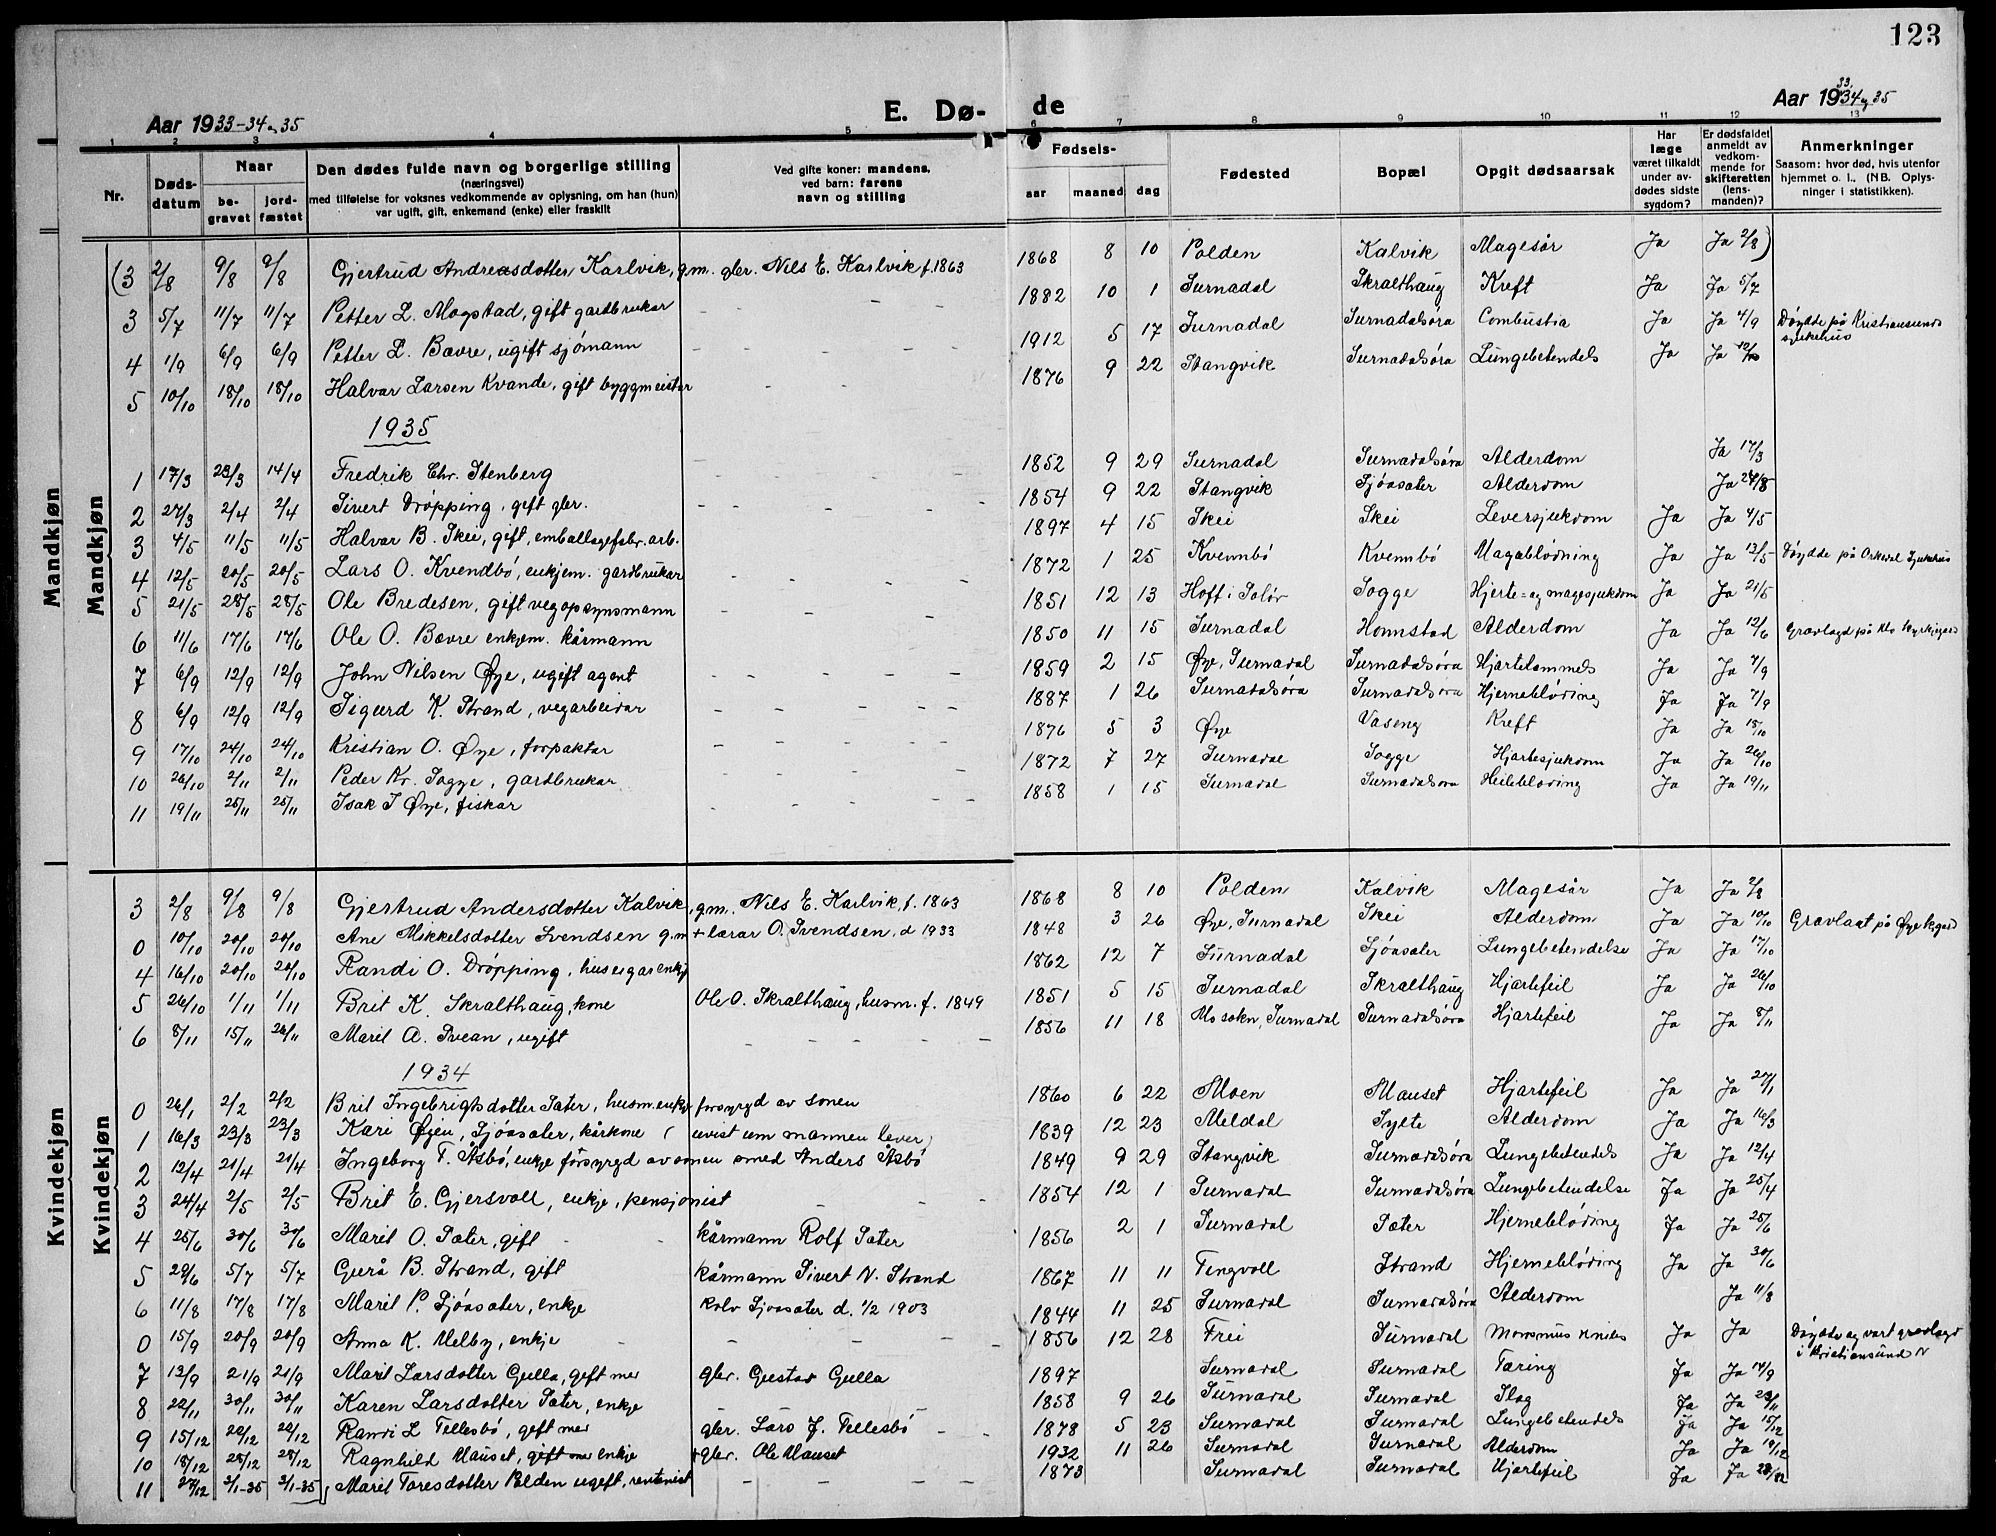 123
Aar 1933-34 og 35
E. Dø- de
Aar 1933, 34 og 35
1 2 3 4 5 6 7 8 9 10 11 12 13
Nr. Døds-datum Naar be-gravet jord-fæstet Den dødes fulde navn og borgerlige stilling (næringsvei) med tilføielse for voksnes vedkommende av oplysning, om han (hun) var ugift, gift, enkemand (enke) eller fraskilt Ved gifte koner: mandens, ved barn: farens navn og stilling Fødsels- aar maaned dag Fødested Bopæl Opgit dødsaarsak Har læge været tilkaldt under av-dødes sidste sygdom? Er dødsfaldet anmeldt av vedkom-mende for skifteretten (lens-manden)? Anmerkninger Saasom: hvor død, hvis utenfor hjemmet o. l., (NB. Oplys-ninger i statistikken).
Mandkjøn
Mandkjøn
(3 2/8 9/8 9/8 Gjertrud Andreasdotter Karlvik, gm. gbr. Nils E. Karlvik f. 1863 1868 8 10 Polden Kalvik Magesår Ja Ja 2/8)
3 5/7 11/7 11/7 Petter L. Mogstad, gift gardbrukar - - - 1882 10 1 Surnadal Skralthaug Kreft Ja Ja 5/7
4 1/9 6/9 6/9 Petter L. Bævre, ugift sjömann - - - 1912 5 17 Surnadal Surnadalsöra Combustia Ja Ja 4/9 Döydde på Kristiansunds sjukehus
5 10/10 18/10 18/10 Halvar Larsen Kvande, gift byggmeister - - - 1876 9 22 Stangvik Surnadalsöra Lungebetendels Ja Ja
1935
1 17/3 23/3 14/4 Fredrik Chr. Stenberg 1852 9 29 Surnadal Surnadalsöra Alderdom Ja 17/3
2 27/3 2/4 2/4 Sivert Dröpping, gift gbr. - - - 1854 9 22 Stangvik Sjöasæter Alderdom Ja
3 4/5 11/5 11/5 Halvar B. Skei, gift, emballagefabr. arb. 1897 4 15 Skei Skei Leversjukdom Ja Ja 4/5
4 12/5 20/5 20/5 Lars O. Kvendbö, enkjem. gardbrukar - - - 1872 1 25 Kvennbö Kvennbö Magablödning Ja Ja 13/5 Döydde på Orkdal Sjukehus
5 21/5 28/5 28/5 Ole Bredesen, gift vegopsynsmann - - - 1851 12 13 Hoff i Solör Sogge Hjerte- og magesjukdom Ja Ja 21/5
6 11/6 17/6 17/6 Ole O. Bævre enkjem. kårmann - - - 1850 11 15 Surnadal Honnstad Alderdom Ja Ja 12/6 Gravlagd på
7 6/9 12/9 12/9 John Nilsen Öye, ugift agent - - - 1859 2 15 Öye, Surnadal Surnadalsöra Hjartelammels Ja Ja 7/9
8 6/9 12/9 12/9 Sigurd K. Strand, vegarbeidar - - - 1887 1 26 Surnadalsöra Surnadalsöra Hjerneblöding Ja Ja 7/9
9 17/10 24/10 24/10 Kristian O. Öye, forpaktar - - - 1876 5 3 Öye Vaseng Kreft Ja Ja 18/10
10 26/10 2/11 2/11 Peder Kr. Sogge, gardbrukar - - - 1872 7 27 Surnadal Sogge Hjartesjukdom Ja Ja 26/10
11 19/11 25/11 25/11 Isak I Öye, fiskar - - - 1858 1 15 Surnadal Surnadalsöra Heileblöding Ja Ja 19/11
Kvindekjøn
Kvindekjøn
3 2/8 9/8 9/8 Gjertrud Andersdotter Kalvik, gm. Nils E. Karlvik, f. 1863 1868 8 10 Polden Kalvik Magesår Ja Ja 2/8
0 10/10 20/10 20/10 Ane Mikkelsdotter Svendsen g.m + lærar O. Svendsen, d 1933 1848 3 26 Öye, Surnadal Skei Alderdom Ja Ja 10/10 Gravlagt på Öye
4 16/10 20/10 20/10 Randi O. Dröpping, huseigarenkj 1862 12 7 Surnadal Sjöasæter Lungebetendelse Ja Ja 17/10
5 26/10 1/11 1/11 Brit K. Skralthaug, kone Ole O. Skralthaug, husm. f. 1849 1851 5 15 Surnadal Skralthaug Hjartefeil Ja Ja 26/10
6 8/11 15/11 26/11 Maret A. Svean, ugift - - - 1856 11 18 Mo sokn, Surnadal Surnadalsöra Hjartefeil Ja Ja 8/11
1934
0 26/1 2/2 2/2 Brit Ingebrigtsdotter Sæter, husm.enkje forsyrgd av sonen 1860 6 22 Moen Mauset Hjartefeil Ja Ja 27/1
1 16/3 23/3 23/3 Kari Öyen, Sjöasæter, kårkone (uvist um mannen lever) 1839 12 23 Meldal Sylte Alderdom Ja Ja 16/3
2 12/4 21/4 21/4 Ingeborg T. Åsbö, enkje försyrgd av sonen smed Anders Åsbö 1849 9 29 Stangvik Surnadalsöra Lungebetendels Ja Ja 12/4
3 24/4 2/5 2/5 Brit E. Gjersvoll, enkje, pensjonist - - 1854 12 1 Surnadal Surnadalsöra Lungebetendelse Ja Ja 25/4
4 25/6 30/6 30/6 Marit O. Sæter, gift kårmann Rolf Sæter 1856 2 1 Surnadal Sæter Hjerneblöding Ja Ja 25/6
5 29/6 5/7 5/7 Gurå B. Strand, gift kårmann Sivert N. Strand 1867 11 11 Tingvoll Strand Hjerneblöding Ja Ja 30/6
6 11/8 17/8 17/8 Marit P. Sjöasæter, enkje Rolv Sjöasæter d. 1/2 1903 1844 11 25 Surnadal Surnadalsöra Alderdom Ja 11/8
0 15/9 20/9 20/9 Anna K. Melby, enkje - - - 1856 12 28 Frei Surnadal Ja Ja Döydde og vart gravlagd i Kristiansund N
7 13/9 21/9 21/9 Marit Larsdotter Gulla, gift mer gbr. Gustav Gulla 1897 Surnadal Surnadal Tæring Ja Ja 14/9
8 22/11 30/11 30/11 Karen Larsdotter Sæter, enkje - - - 1858 9 26 Surnadal Surnadal Slag Ja Ja 23/11
9 15/12 20/12 20/12 Randi L Tellesbö, gift mer gbr. Lars J. Tellesbö 1878 5 23 Surnadal Surnadal Lungebetendels Ja Ja 15/12
10 18/12 28/12 28/12 Ragnhild Mauset, gift mer enkje + gbr. Ole Mauset 1932 11 26 Surnadal Surnadal Alderdom Ja Ja 19/12
11 27/12 3/1-35 3/1-35 Marit Toresdotter Polden ugift, rentenist - - - 1873 Surnadal Surnadal Hjartefeil Ja Ja